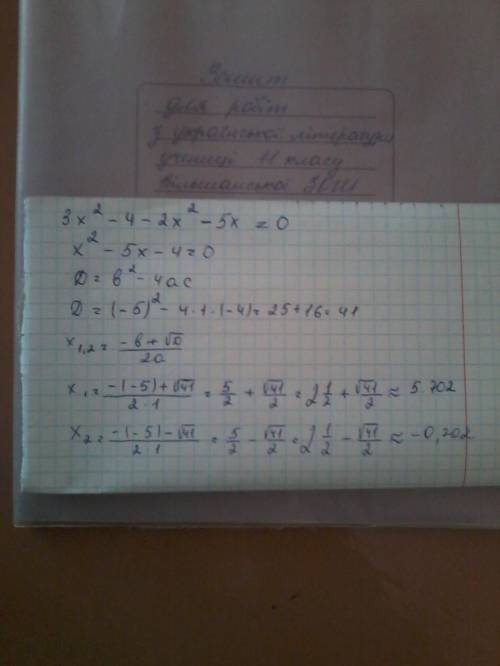 Зошит
для робіт
з української літератури
учениці 11 класу
Вільшанської ЗОШ
3x² - 4 - 2x² - 5x = 0
x² - 5x - 4 = 0
D = b² - 4ac
D = (-5)² - 4·1·(-4) = 25 + 16 = 41
x₁,₂ = (-b + √D)/2a
x₁ = (-(-5) + √41)/(2·1) = 5/2 + √41/2 = 2 1/2 + √41/2 ≈ 5.702
x₂ = (-(-5) - √41)/(2·1) = 5/2 - √41/2 = 2 1/2 - √41/2 ≈ -0,702